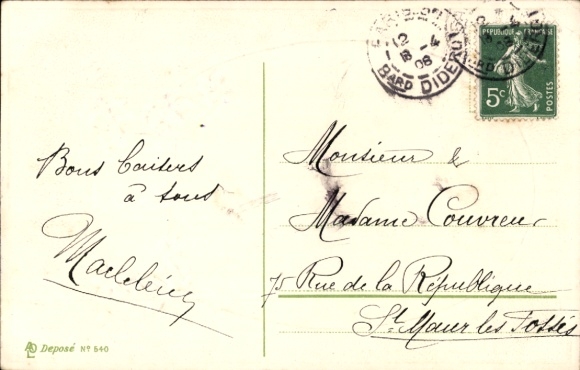 Bons baisers
à tous
Madeleine
Monsieur &
Madame Couvreur
75 Rue de la République
St Maur les Fossés
PARIS
12
18 - 4
08
BARD DIDEROT
12
4
BARD DIDEROT
RÉPUBLIQUE FRANÇAISE
5c
POSTES
Deposé No 540